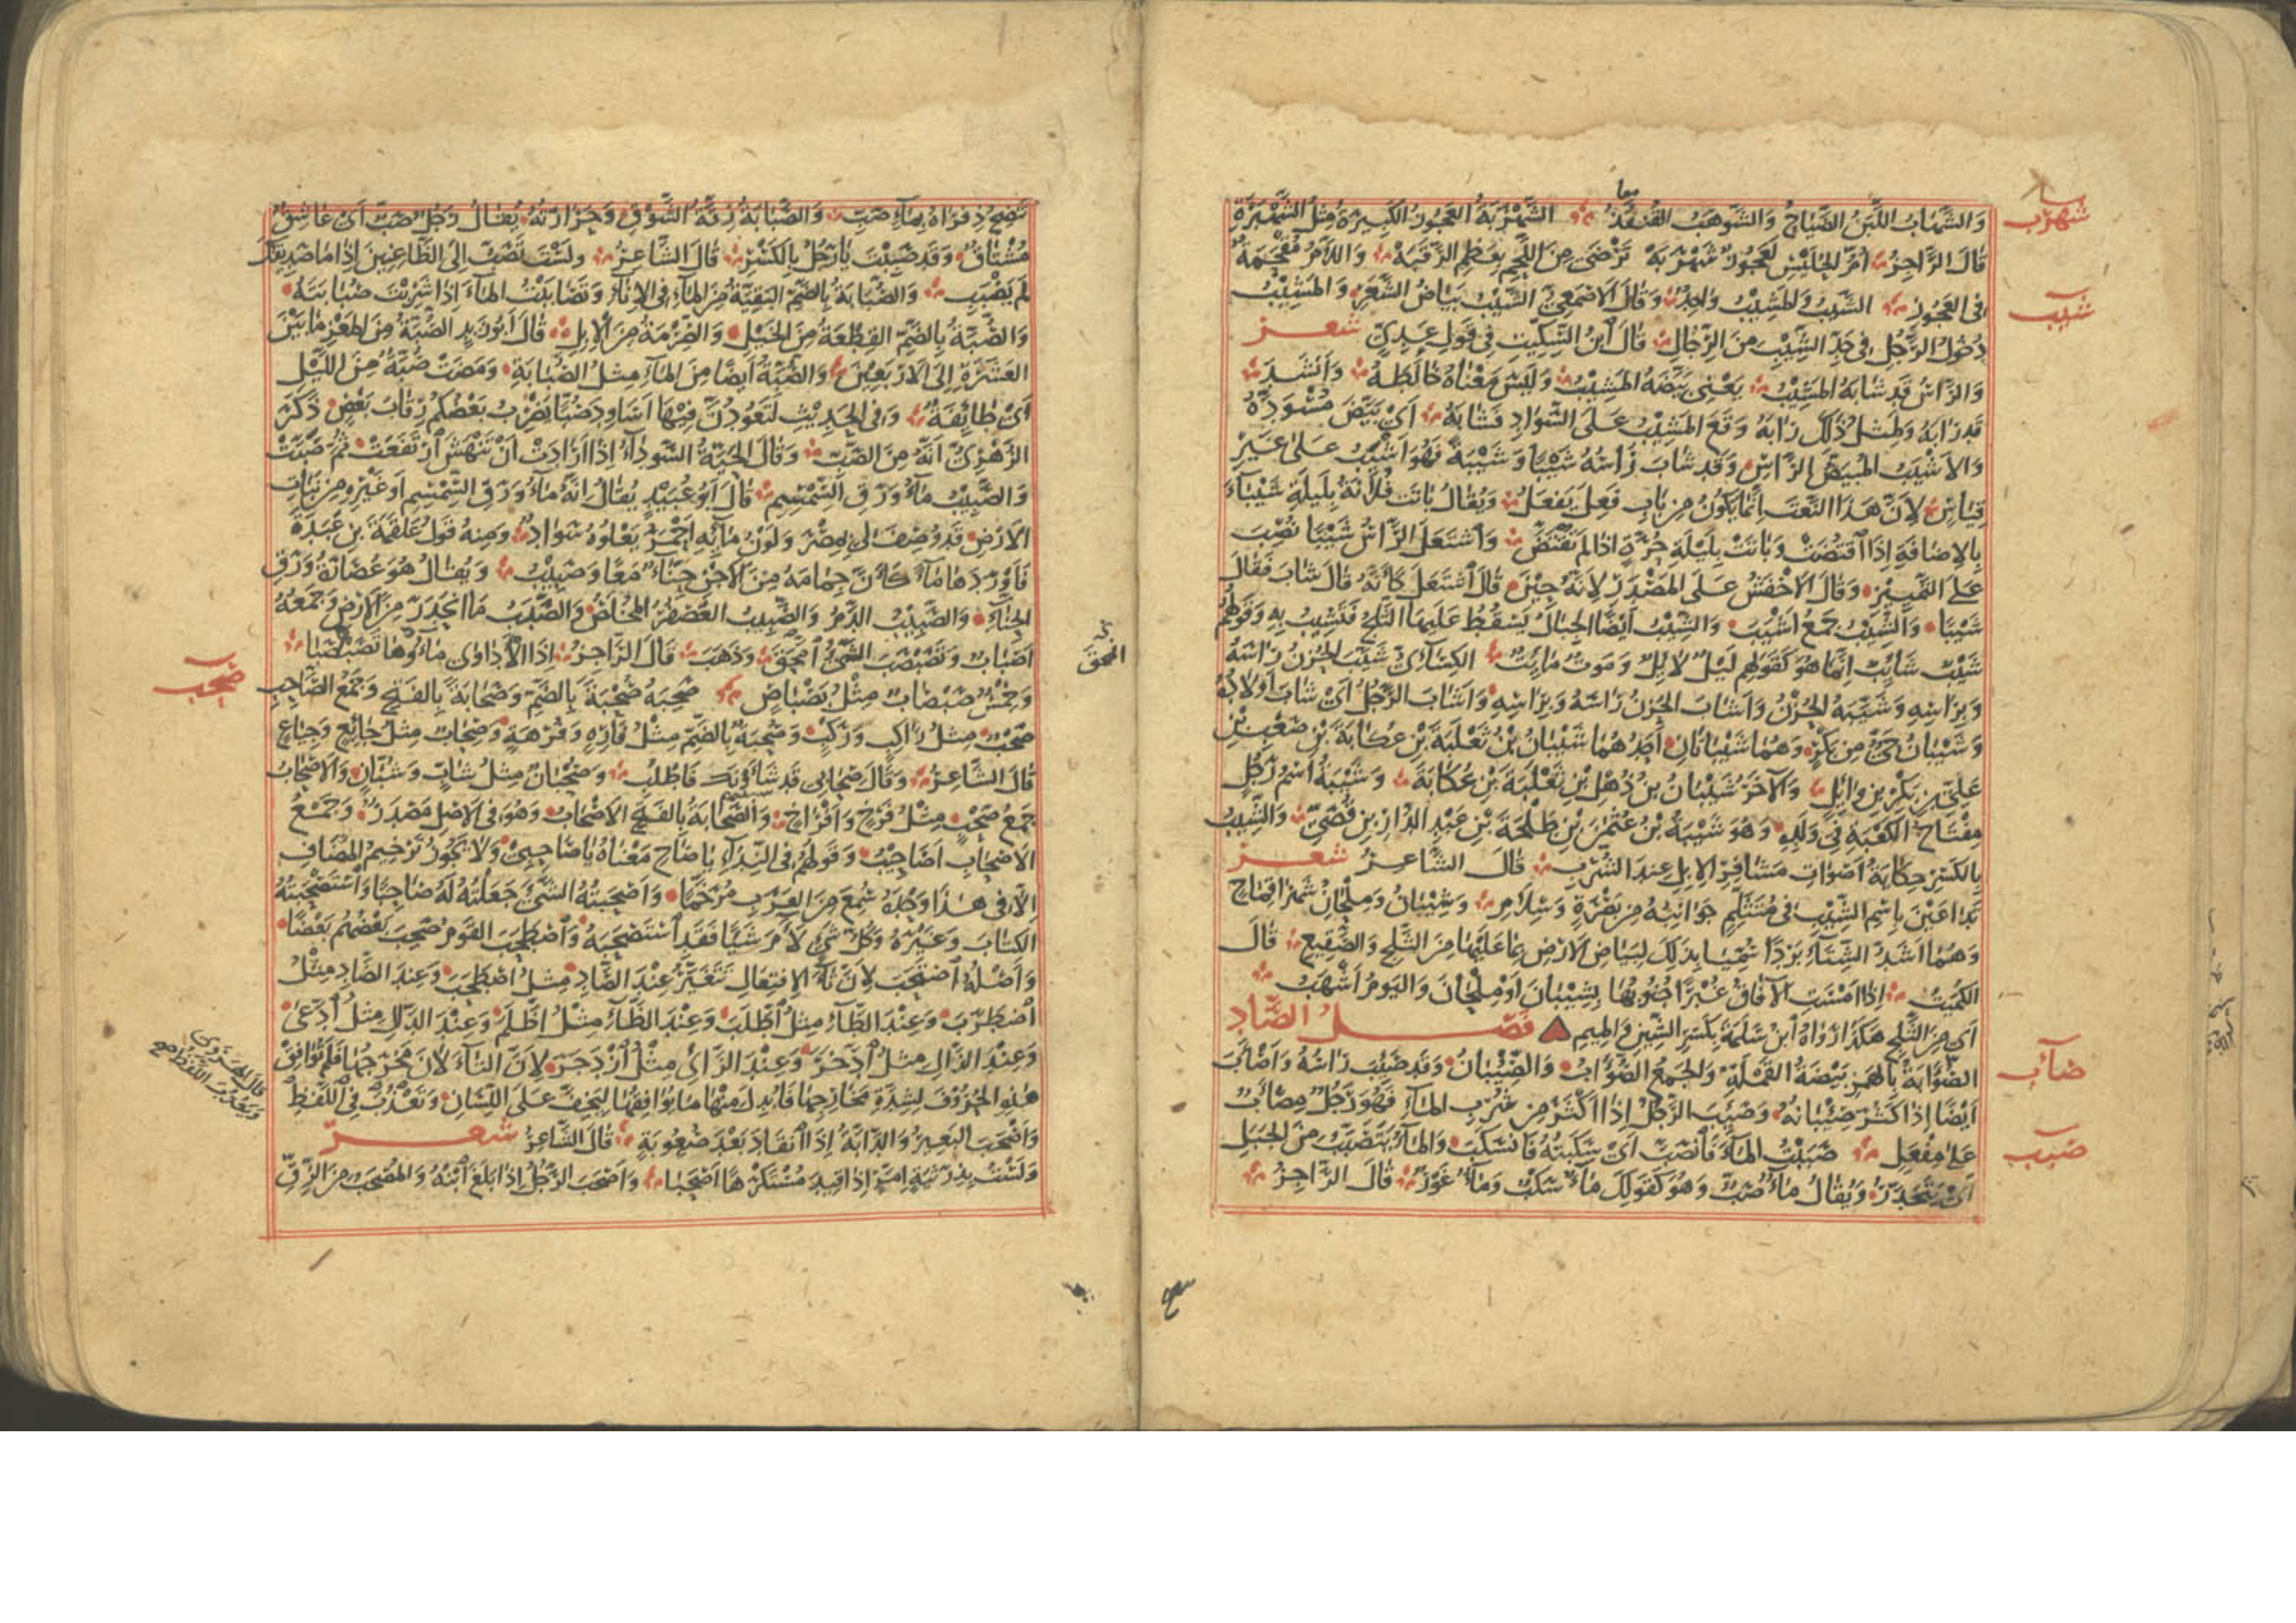 شهرب
معا
وَالشَّهابُ اللَّبَنُ الضَّيَاحُ وَالشَّوْهَبُ القُنْفُذُ الشَّهْرَبَةُ العَجُوزُ الكَبِيرَةُ مِثْلُ الشَّهْبَرَةِ
قَالَ الرَّاجِزُ أُمُّ الحُلَيْسِ لَعَجُوزٌ شَهْرَبَهْ تَرْضَى مِنَ اللَّحْمِ بِعَظْمِ الرَّقَبَهْ وَاللَّامُ مُقْحَمَةٌ
شيب
فى العَجُوزِ الشَّيْبُ وَالمَشِيْبُ وَاحِدٌ وَقَالَ الاَصْمَعِيُّ الشَّيْبُ بَيَاضُ الشَّعَرِ وَالمَشِيْبُ
دُخُولُ الرَّجُلِ فِى حَدِّ الشِّيْبِ مِنَ الرِّجَالِ قَالَ ابْنُ السِّكِّيْتِ فِى قَوْلِ عَدِىٍّ شعر
وَالرَّاسُ قَدْ شَابَهُ المَشِيْبُ يَعْنِى بَيَّضَهُ المَشِيْبُ وَلَيْسَ مَعْنَاهُ خَالَطَهُ وَاَنْشَدَ
قَدْ رَابَهُ وَلِمِثْلِ ذٰلِكَ رَابَهُ وَقَعَ المَشِيْبُ عَلَى السَّوَادِ فَشَابَهُ اَىْ بَيَّضَ مُسْوَدَّهُ
وَالاَشْيَبُ المُبْيَضُّ الرَّاسِ وَقَدْ شَابَ رَاسُهُ شَيْبًا وَشَيْبَةً فَهُوَ اَشْيَبُ عَلَى غَيْرِ
قِيَاسٍ لِاَنَّ هَذَا النَّعْتَ اِنَّمَا يَكُونُ مِنْ بَابِ فَعِلَ يَفْعَلُ وَيُقَالُ بَاتَتْ فُلَانَةُ بِلَيْلَةِ شَيْبَاءَ
بِالاِضَافَةِ اِذَا اقْتُضَّتْ وَبَاتَتْ بِلَيْلَةِ حُرَّةٍ اِذَا لَمْ تُقْتَضَّ وَاشْتَعَلَ الرَّاْسُ شَيْبًا نُصِبَ
عَلَى التَّمْيِيْزِ وَقَالَ الاَخْفَشُ عَلَى المَصْدَرِ لِاَنَّهُ حِيْنَ قَالَ اشْتَعَلَ كَاَنَّهُ قَالَ شَابَ فَقَالَ
شَيْبًا وَالشِّيْبُ جَمْعُ اَشْيَبَ وَالشِّيْبُ اَيْضًا الجِبَالُ يَسْقُطُ عَلَيْهَا الثَّلْجُ فَتَشِيْبُ بِهِ وَقَوْلُهُمْ
شَيْبٌ شَائِبٌ اِنَّمَا هُوَ كَقَوْلِهِمْ لَيْلٌ لَائِلٌ وَمَوْتٌ مَائِتٌ الكِسَائِىُّ شَيَّبَ الحُزْنُ رَاسَهُ
وَبِرَاسِهِ وَشَيَّبَهُ الحُزْنُ وَاَشَابَ الحُزْنُ رَاسَهُ وَبِرَاسِهِ وَاَشَابَ الرَّجُلُ اَىْ شَابَ اَوْلَادُهُ
وَشَيْبَانُ حَىٌّ مِنْ بَكْرٍ وَهُمَا شَيْبَانَانِ اَحَدُهُمَا شَيْبَانُ بْنُ ثَعْلَبَةَ بْنِ عُكَابَةَ بْنِ صَعْبِ بْنِ
عَلِىِّ بْنِ بَكْرِ بْنِ وَائِلٍ وَالآخَرُ شَيْبَانُ بْنُ ذُهْلِ بْنِ ثَعْلَبَةَ بْنِ عُكَابَةَ وَشَيْبَةُ اسْمُ رَجُلٍ
مِفْتَاحُ الكَعْبَةِ فِى وَلَدِهِ وَهُوَ شَيْبَةُ بْنُ عُثْمٰنَ بْنِ طَلْحَةَ بْنِ عَبْدِ الدَّارِ بْنِ قُصَىٍّ وَالشِّيْبُ
بِالكَسْرِ حِكَايَةُ اَصْوَاتِ مَشَافِرِ الاِبِلِ عِنْدَ الشُّرْبِ قَالَ الشَّاعِرُ شعر
تَدَاعَيْنَ بِاسْمِ الشِّيْبِ فِى مُتَثَلِّمٍ جَوَانِبُهُ مِنْ بَصْرَةٍ وَسِلَامِ وَشِيْبَانُ وَمِلْحَانُ شَهْرَا قِمَاحٍ
وَهُمَا اَشَدُّ الشِّتَاءِ بَرْدًا سُمِّيَا بِذَلِكَ لِبَيَاضِ الاَرْضِ بِمَا عَلَيْهَا مِنَ الثَّلْجِ وَالصَّقِيْعِ قَالَ
الكُمَيْتُ اِذَا اَمْسَتِ الآفَاقُ غُبْرًا جُنُوْبُهَا بِشِيْبَانَ اَوْ مِلْحَانَ وَاليَوْمُ اَشْهَبُ
اَىْ مِنَ الثَّلْجِ هَكَذَا رَوَاهُ ابْنُ سَلَمَةَ بِكَسْرِ الشِّيْنِ وَالمِيْمِ فصل الصَّاد
صاب
الصُّؤَابَةُ بِالهَمْزِ بَيْضَةُ القَمْلَةِ وَالجَمْعُ الصُّؤَابُ وَالصِّئْبَانُ وَقَدْ صَئِبَ رَاسُهُ وَاَصْاَبَ
اَيْضًا اِذَا كَثُرَ صِئْبَانُهُ وَصَئِبَ الرَّجُلُ اِذَا اَكْثَرَ مِنْ شُرْبِ المَاءِ فَهُوَ رَجُلٌ مِصْاَبٌ
صبب
عَلَى مِفْعَلٍ صَبَبْتُ المَاءَ فَانْصَبَّ اَىْ سَكَبْتُهُ فَانْسَكَبَ وَالمَاءُ يَتَصَبَّبُ مِنَ الجَبَلِ
اَىْ يَتَحَدَّرُ وَيُقَالُ مَاءٌ صَبٌّ وَهُوَ كَقَوْلِكَ مَاءٌ سَكْبٌ وَمَاءٌ غَوْرٌ قَالَ الرَّاجِزُ
تَنْضِحُ ذِفْرَاهُ بِمَاءٍ صَبِّ وَالصَّبَابَةُ رِقَّةُ الشَّوْقِ وَحَرَارَتُهُ يُقَالُ رَجُلٌ صَبٌّ اَىْ عَاشِقٌ
مُشْتَاقٌ وَقَدْ صَبِبْتَ يَا رَجُلُ بِالكَسْرِ قَالَ الشَّاعِرُ وَلَسْتَ تَصَبُّ اِلَى الظَّاعِنِيْنَ اِذَا مَا صَدِيْقُكَ
لَمْ يَصْبَبِ وَالصُّبَابَةُ بِالضَّمِّ البَقِيَّةُ مِنَ المَاءِ فِى الاِنَاءِ وَتَصَابَبْتُ المَاءَ اِذَا شَرِبْتَ صُبَابَتَهُ
وَالصُّبَّةُ بِالضَّمِّ القِطْعَةُ مِنَ الخَيْلِ وَالصِّرْمَةُ مِنَ الاِبِلِ قَالَ اَبُو زَيْدٍ الصُّبَّةُ مِنَ المَعْزِ مَا بَيْنَ
العَشَرَةِ اِلَى الاَرْبَعِيْنَ وَالصُّبَّةُ اَيْضًا مِنَ المَاءِ مِثْلُ الصُّبَابَةِ وَمَضَتْ صُبَّةٌ مِنَ اللَّيْلِ
اَىْ طَائِفَةٌ وَفِى الحَدِيْثِ لَتَعُوْدُنَّ فِيْهَا اَسَاوِدَ صُبًّا يَضْرِبُ بَعْضُكُمْ رِقَابَ بَعْضٍ ذَكَرَ
الزُّهْرِىُّ اَنَّهُ مِنَ الصَّبِّ وَقَالَ الحَيَّةُ السَّوْدَاءُ اِذَا اَرَادَتْ اَنْ تَنْهَشَ ارْتَفَعَتْ ثُمَّ صَبَّتْ
وَالصَّبِيْبُ مَاءُ وَرَقِ السِّمْسِمِ قَالَ اَبُو عُبَيْدٍ يُقَالُ اِنَّهُ مَاءُ وَرَقِ السِّمْسِمِ اَوْ غَيْرِهِ مِنْ نَبَاتِ
الاَرْضِ قَدْ وُصِفَ لِى بِمِصْرَ وَلَوْنُ مَائِهِ اَحْمَرُ يَعْلُوهُ سَوَادٌ وَمِنْهُ قَوْلُ عَلْقَمَةَ بْنِ عَبَدَةَ
فَاَوْرَدَهَا مَاءً كَاَنَّ جِمَامَهُ مِنَ الاَجْنِ حِنَّاءٌ مَعًا وَصَبِيْبُ وَيُقَالُ هُوَ عُصَارَةُ وَرَقِ
الحِنَّاءِ وَالصَّبِيْبُ الدَّمُ وَالصَّبِيْبُ العُصْفُرُ المُخْلَصُ وَالصَّبَبُ مَا انْحَدَرَ مِنَ الاَرْضِ وَجَمْعُهُ
امحق
اَصْبَابٌ وَتَصَبْصَبَ الشَّىْءُ امَّحَقَ وَذَهَبَ قَالَ الرَّاجِزُ اِذَا الاَدَاوَى مَاؤُهَا تَصَبْصَبَا
صحب
وَخِمْسٌ صَبْصَابٌ مِثْلُ بَصْبَاصٍ صَحِبَهُ صُحْبَةً بِالضَّمِّ وَصَحَابَةً بِالفَتْحِ وَجَمْعُ الصَّاحِبِ
صَحْبٌ مِثْلُ رَاكِبٍ وَرَكْبٍ وَصُحْبَةٌ بِالضَّمِّ مِثْلُ فَارِهٍ وَفُرْهَةٍ وَصِحَابٌ مِثْلُ جَائِعٍ وَجِيَاعٍ
قَالَ الشَّاعِرُ وَقَالَ صِحَابِى قَدْ شَاَوْنَكَ فَاطْلُبْ وَصُحْبَانٌ مِثْلُ شَابٍّ وَشُبَّانٍ وَالاَصْحَابُ
جَمْعُ صَحْبٍ مِثْلُ فَرْخٍ وَاَفْرَاخٍ وَالصَّحَابَةُ بِالفَتْحِ الاَصْحَابُ وَهُوَ فِى الاَصْلِ مَصْدَرٌ وَجَمْعُ
الاَصْحَابِ اَصَاحِيْبُ وَقَوْلُهُمْ فِى النِّدَاءِ يَا صَاحِ مَعْنَاهُ يَا صَاحِبِىْ وَلَا يَجُوزُ تَرْخِيمُ المُضَافِ
اِلَّا فِى هٰذَا وَحْدَهُ سُمِعَ مِنَ العَرَبِ مُرَخَّمًا وَاَصْحَبْتُهُ الشَّىْءَ جَعَلْتُهُ لَهُ صَاحِبًا وَاسْتَصْحَبْتُهُ
الكِتَابَ وَغَيْرَهُ وَكُلُّ شَىْءٍ لَاءَمَ شَيْئًا فَقَدِ اسْتَصْحَبَهُ وَاصْطَحَبَ القَوْمُ صَحِبَ بَعْضُهُمْ بَعْضًا
وَاَصْلُهُ اصْتَحَبَ لِاَنَّ تَاءَ الاِفْتِعَالِ تَتَغَيَّرُ عِنْدَ الصَّادِ مِثْلُ اصْطَحَبَ وَعِنْدَ الضَّادِ مِثْلُ
اضْطَرَبَ وَعِنْدَ الطَّاءِ مِثْلُ اطَّلَبَ وَعِنْدَ الظَّاءِ مِثْلُ اظَّلَمَ وَعِنْدَ الدَّالِ مِثْلُ ادَّعَى
وَعِنْدَ الذَّالِ مِثْلُ ادَّخَرَ وَعِنْدَ الزَّاىِ مِثْلُ ازْدَجَرَ لِاَنَّ التَّاءَ لَانَ مَخْرَجُهَا فَلَمْ تُوَافِقْ
هٰذِهِ الحُرُوْفَ لِشِدَّةِ مَخَارِجِهَا فَاُبْدِلَ مِنْهَا مَا يُوَافِقُهَا لِتَخِفَّ عَلَى اللِّسَانِ وَتَعْذُبَ فِى اللَّفْظِ
قال الهروى
ويعذب اللفظ صح
وَاَصْحَبَ البَعِيْرُ وَالدَّابَّةُ اِذَا انْقَادَ بَعْدَ صُعُوبَةٍ قَالَ الشَّاعِرُ شعر
وَلَسْتُ بِذِى رَثْيَةٍ اِمَّرٍ اِذَا قِيْدَ مُسْتَكْرَهًا اَصْحَبَا وَاَصْحَبَ الرَّجُلُ اِذَا بَلَغَ ابْنُهُ وَالمُصْحَبُ مِنَ الزِّقِّ